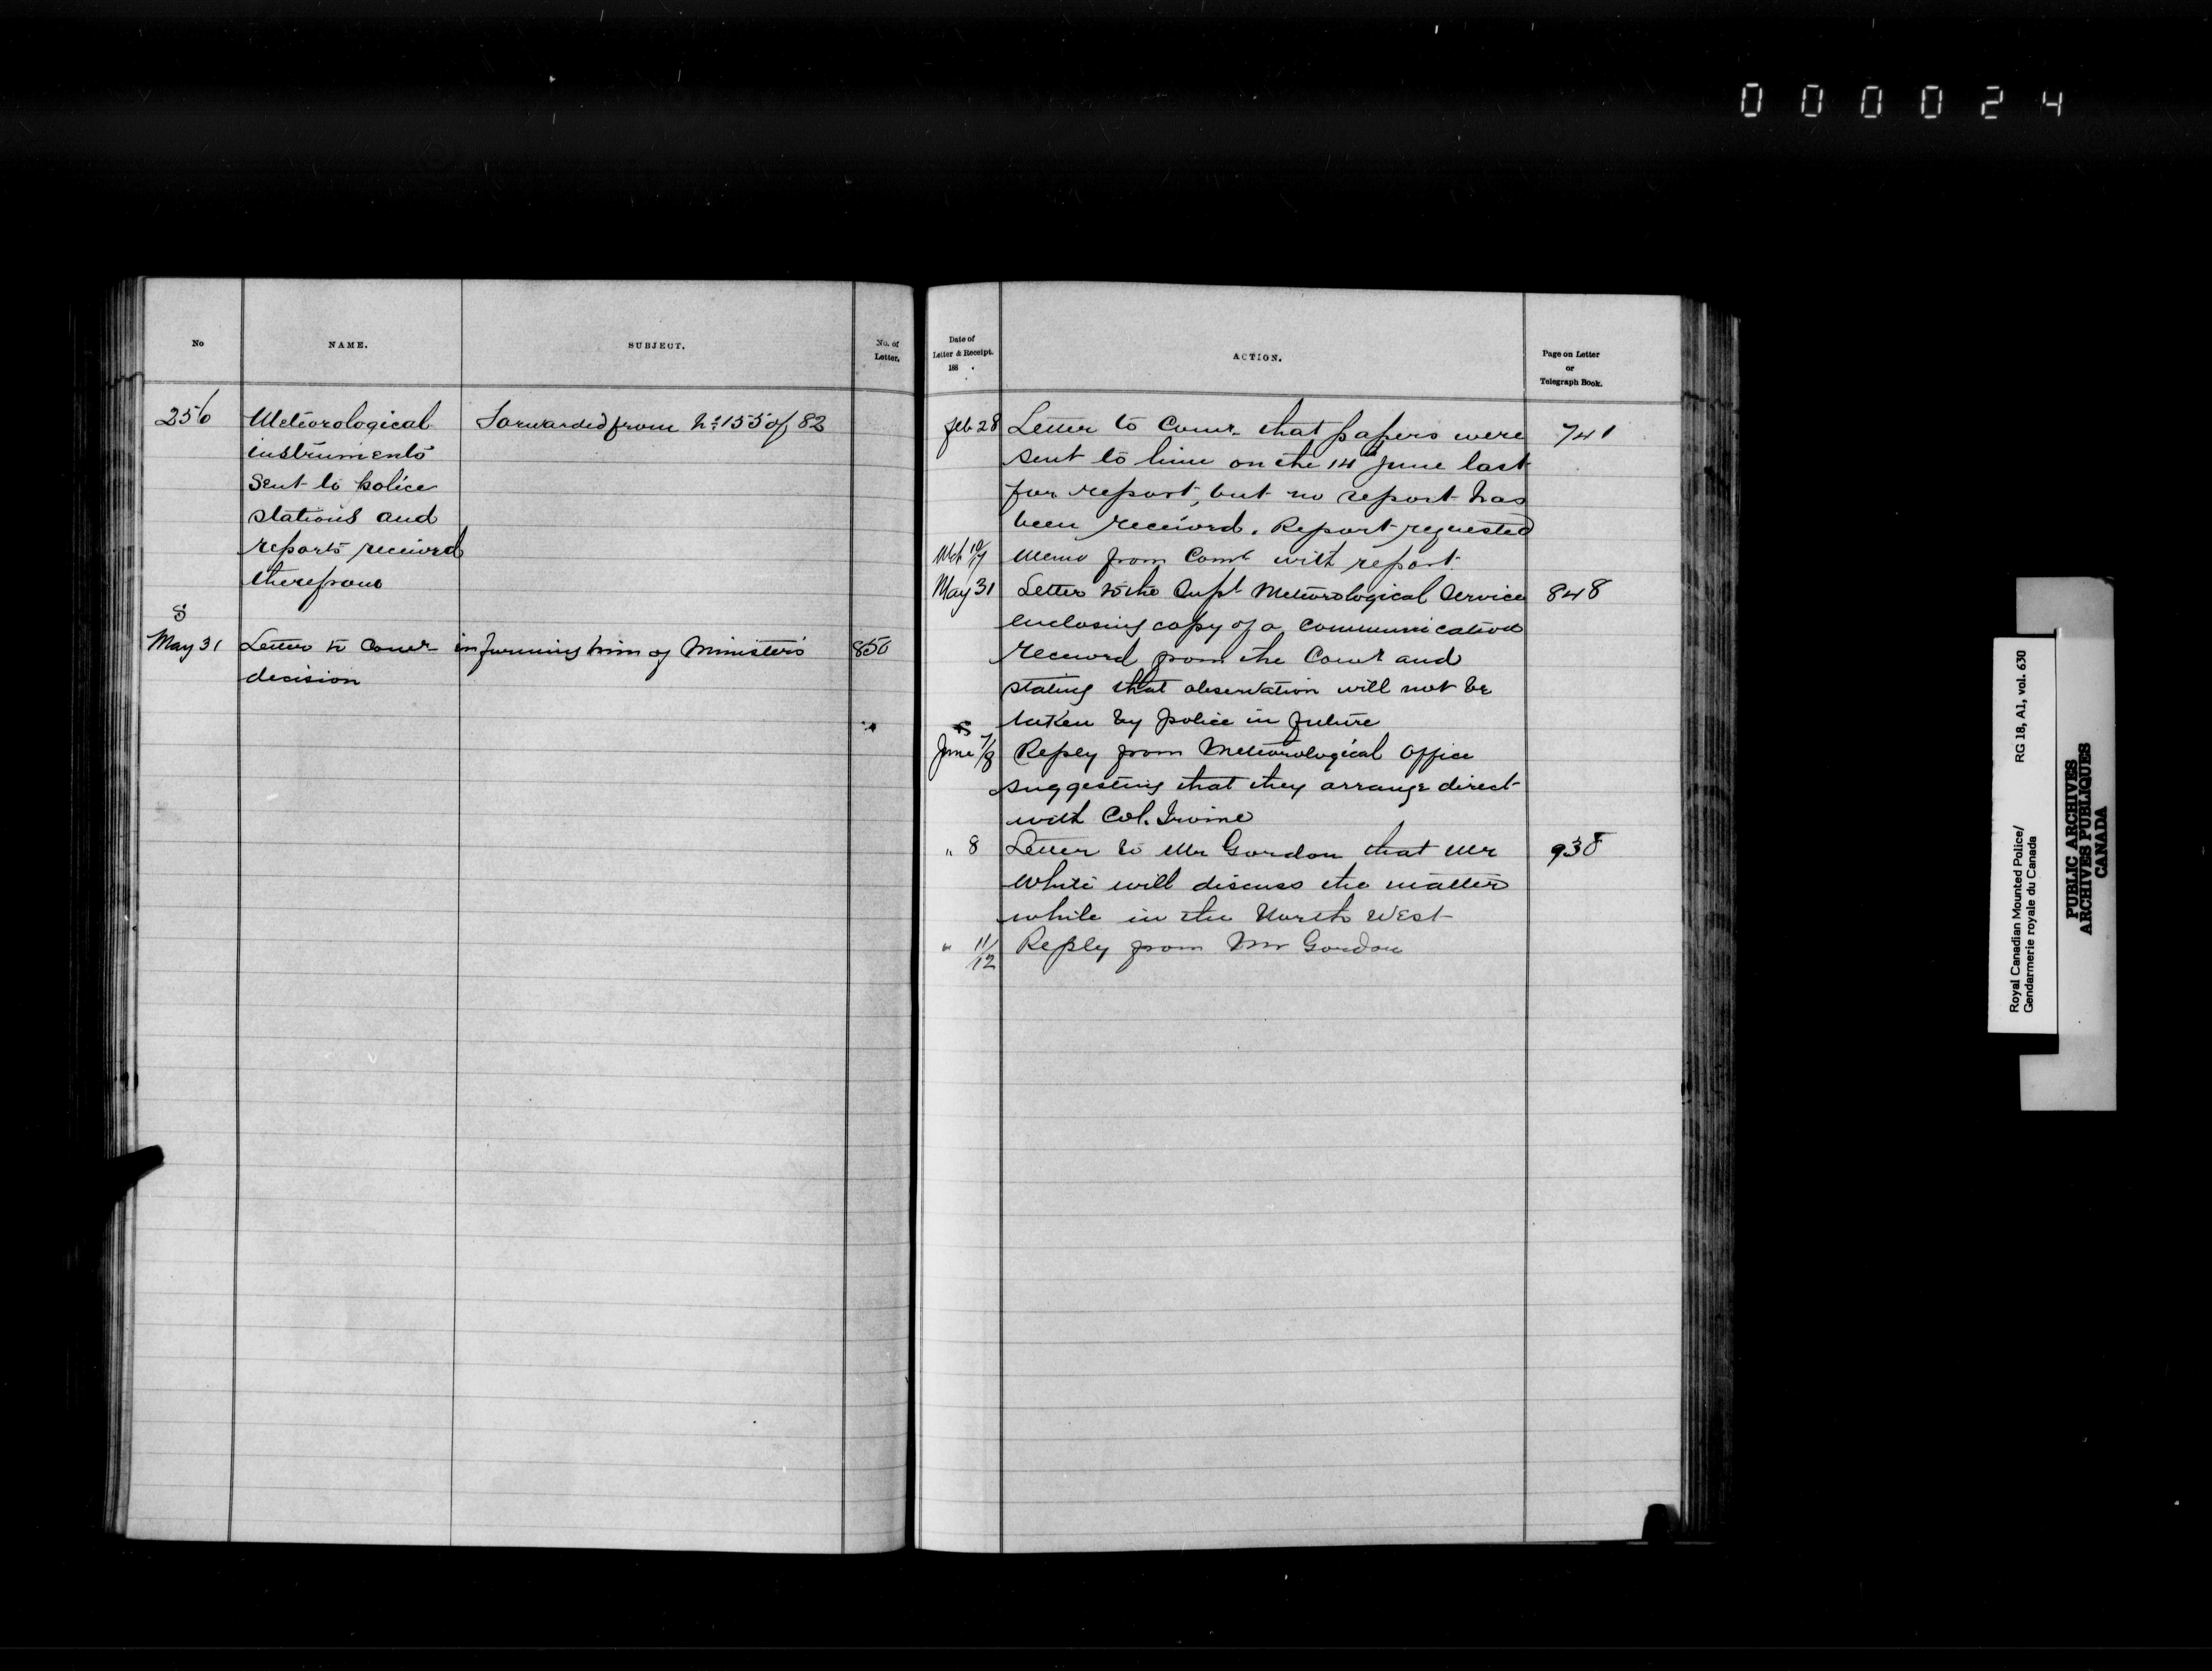 000024
No
NAME.
SUBJECT.
No. of
Letter.
256
Meteorological
Forwarded from No 155 of 82
instruments
sent to police
stations and
reports received
therefrom
8
May 31
Letter to Comr informing him of Minister's
850
decision
Date of
Letter & Receipt.
188 .
ACTION.
Page on Letter
or
Telegraph Book.
Feb 28
Letter to Comr. that papers were
741
sent to him on the 14th June last
for report, but no report has
been received. Report requested
Mch 10/17
Memo from Comr with report.
May 31
Letter to the Supt Meteorological Service
848
enclosing copy of a communication
received from the Comr and
stating that observation will not be
taken by police in future
June 7/8
Reply from Meteorological Office
suggesting that they arrange direct
with Col. Irvine
" 8
Letter to Mr Gordon that Mr
938
White will discuss the matter
while in the North West
" 11/12
Reply from Mr Gordon
Royal Canadian Mounted Police/ RG 18, A1, vol. 630
Gendarmerie royale du Canada
PUBLIC ARCHIVES
ARCHIVES PUBLIQUES
CANADA